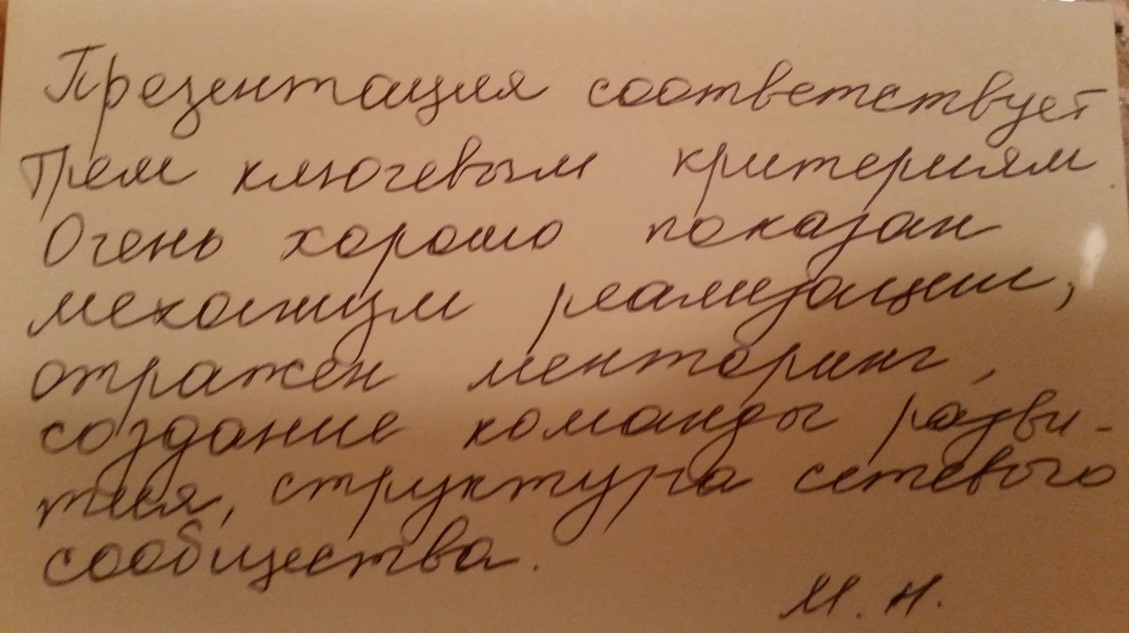 Презентация соответствует
трем ключевым критериям.
Очень хорошо показан
механизм реализации,
отражен менторинг,
создание команды разви-
тия, структура сетевого
сообщества.
М. Н.